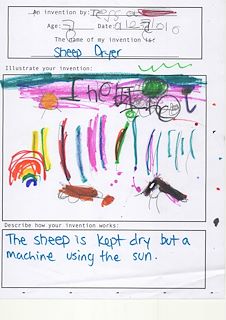 An invention by:
Age: 7 Date:
The name of my invention is:
Sheep Dryer
Illustrate your invention:
Describe how your invention works:
The sheep is kept dry but a
machine using the sun.